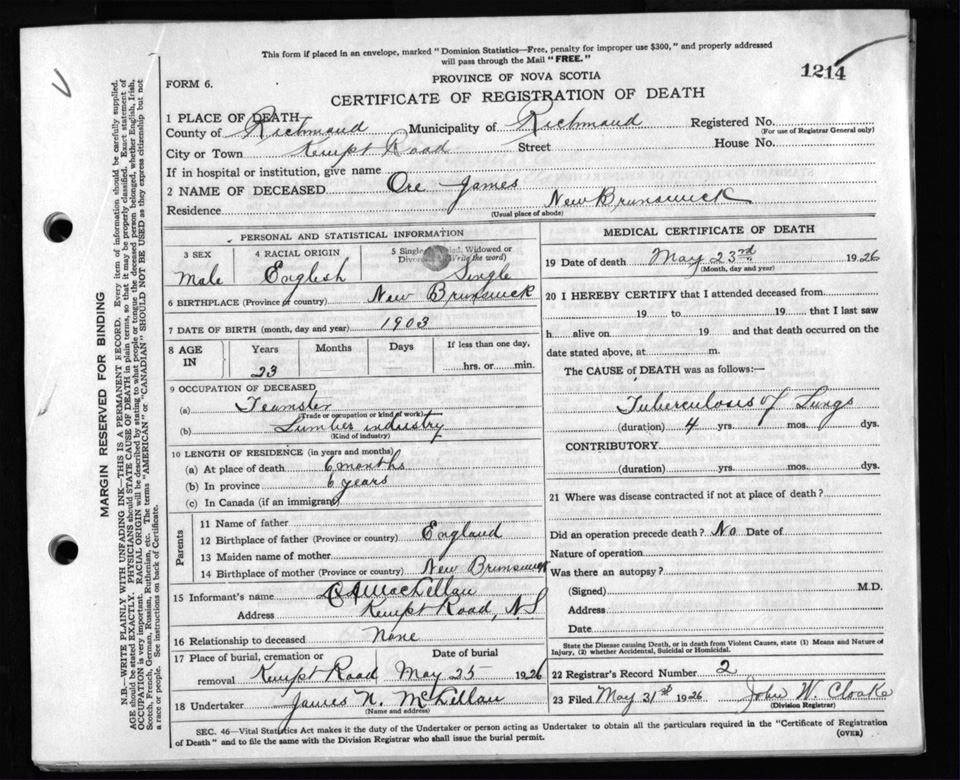 This form if placed in an envelope, marked "Dominion Statistics—Free, penalty for improper use $300," and properly addressed
will pass through the Mail "FREE."
1214
PROVINCE OF NOVA SCOTIA
FORM 6.
CERTIFICATE OF REGISTRATION OF DEATH
1 PLACE OF DEATH
County of Richmond Municipality of Richmond Registered No.
(For use of Registrar General only)
City or Town Kempt Road Street House No.
If in hospital or institution, give name
2 NAME OF DECEASED Ore James
Residence New Brunswick
(Usual place of abode)
PERSONAL AND STATISTICAL INFORMATION
3 SEX 4 RACIAL ORIGIN 5 Single, Widowed or
(Write the word)
Male English Single
6 BIRTHPLACE (Province or country) New Brunswick
7 DATE OF BIRTH (month, day and year) 1903
8 AGE IN Years Months Days If less than one day,
23 hrs. or min.
9 OCCUPATION OF DECEASED
(a) Teamster
(Trade or occupation or kind of work)
(b) Lumber industry
(Kind of industry)
10 LENGTH OF RESIDENCE (in years and months)
(a) At place of death 6 months
(b) In province 6 years
(c) In Canada (if an immigrant)
Parents
11 Name of father
12 Birthplace of father (Province or country) England
13 Maiden name of mother
14 Birthplace of mother (Province or country) New Brunswick
15 Informant's name MacLellan
Address Kempt Road, N.S
16 Relationship to deceased None
17 Place of burial, cremation or Date of burial
removal Kempt Road May 25 1926
18 Undertaker James N. McLellan
(Name and address)
MEDICAL CERTIFICATE OF DEATH
19 Date of death May 23rd 1926
(Month, day and year)
20 I HEREBY CERTIFY that I attended deceased from
19 to 19 that I last saw
h alive on 19 and that death occurred on the
date stated above, at m.
The CAUSE of DEATH was as follows:—
Tuberculosis of Lungs
(duration) 4 yrs. mos. dys.
CONTRIBUTORY
(duration) yrs. mos. dys.
21 Where was disease contracted if not at place of death?
Did an operation precede death? No Date of
Nature of operation
Was there an autopsy?
(Signed) M.D.
Address
Date
State the Disease causing Death, or in death from Violent Causes, state (1) Means and Nature of
Injury, (2) whether Accidental, Suicidal or Homicidal.
22 Registrar's Record Number 2
23 Filed May 31st 1926 John W. Cloake
(Division Registrar)
SEC. 46—Vital Statistics Act makes it the duty of the Undertaker or person acting as Undertaker to obtain all the particulars required in the "Certificate of Registration
of Death" and to file the same with the Division Registrar who shall issue the burial permit.
(OVER)
MARGIN RESERVED FOR BINDING
N.B.—WRITE PLAINLY WITH UNFADING INK—THIS IS A PERMANENT RECORD. Every item of information should be carefully supplied.
AGE should be stated EXACTLY. PHYSICIANS should STATE CAUSE OF DEATH in plain terms, so that it may be properly classified. Exact statement of
OCCUPATION is very important. RACIAL ORIGIN will be described by stating to what people or tongue the deceased person belonged, whether English, Irish,
Scotch, French, German, Russian, Ruthenian, etc. The terms "AMERICAN" or "CANADIAN" SHOULD NOT BE USED as they express citizenship but not
a race or people. See instructions on back of Certificate.